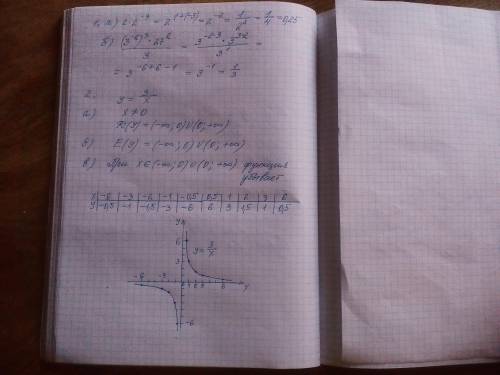 1. а) 2·2⁻³ = 2¹⁺⁽⁻³⁾ = 2⁻² = 1/2² = 1/4 = 0,25
б) (3⁻²)³ · 27² / 3 = 3⁻²·³ · 3³·² / 3¹ =
= 3⁻⁶⁺⁶⁻¹ = 3⁻¹ = 1/3
2. y = 3/x
а) x ≠ 0
(y) = (-∞; 0) U (0; +∞)
б) E(y) = (-∞; 0) U (0; +∞)
в) При x ∈ (-∞; 0) U (0; +∞) функция
убывает
x | -6 | -3 | -2 | -1 | -0,5 | 0,5 | 1 | 2 | 3 | 6
y | -0,5 | -1 | -1,5 | -3 | -6 | 6 | 3 | 1,5 | 1 | 0,5
y
6
y = 3/x
3
-6 -3 6 x
-6